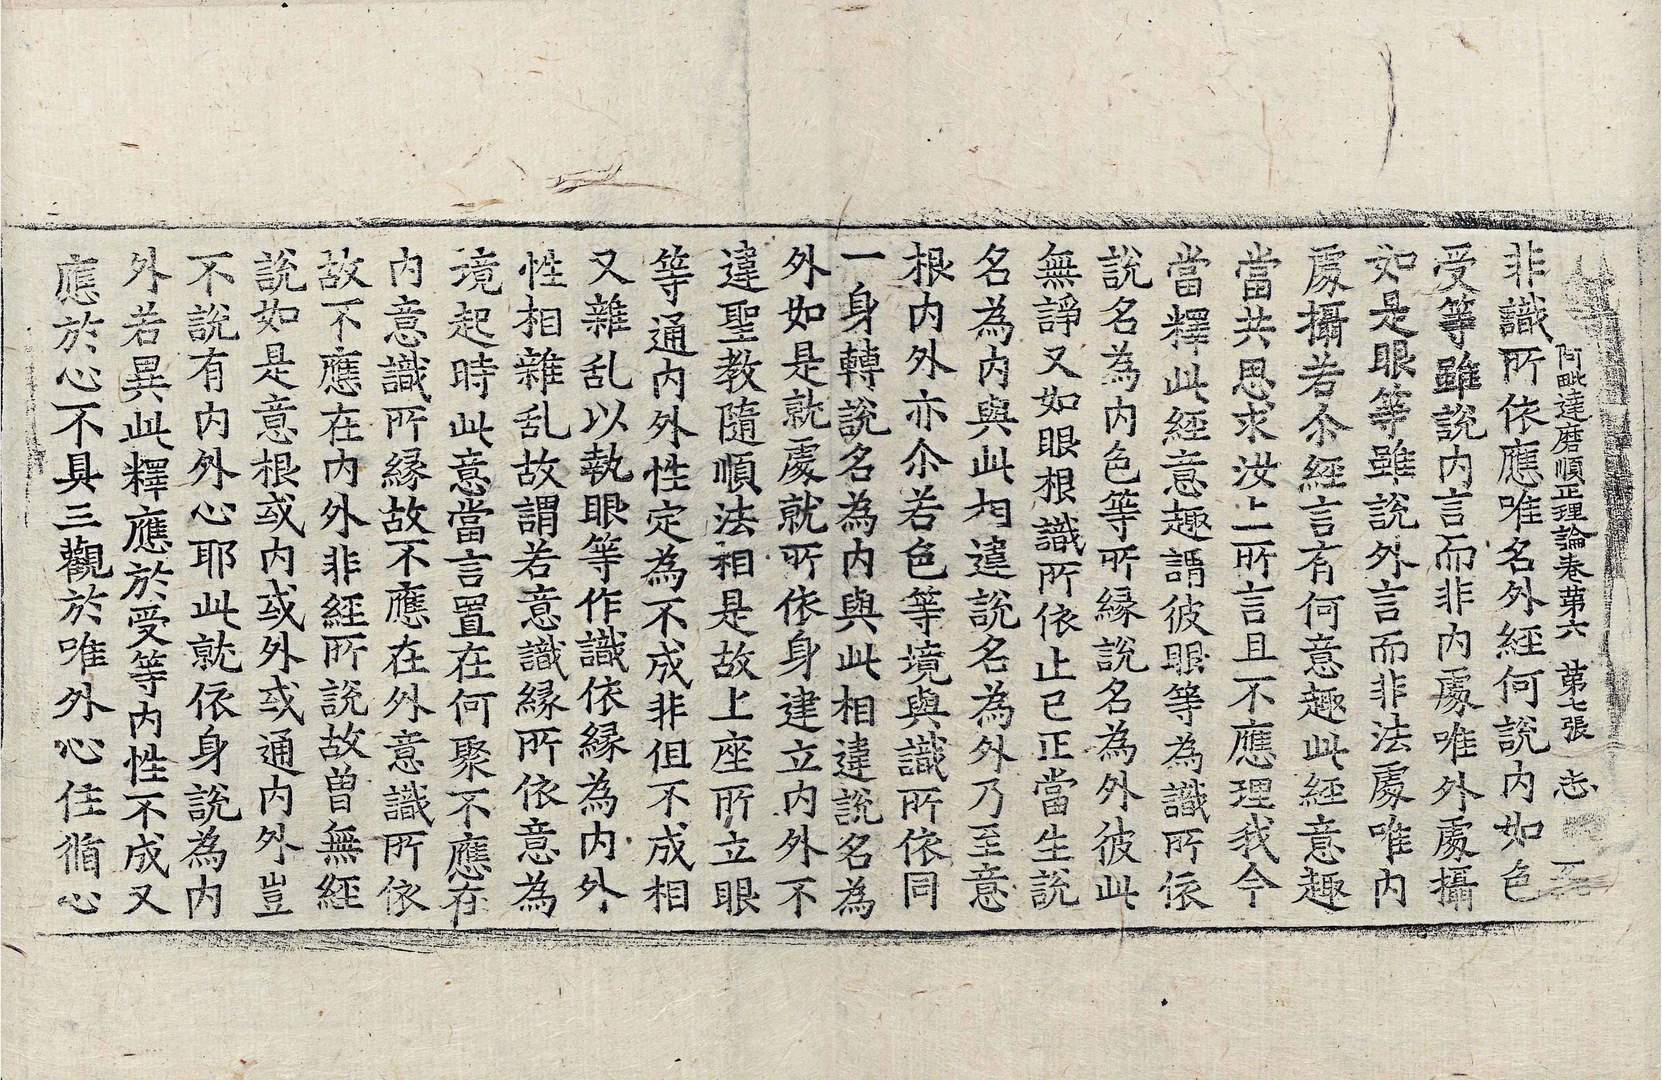 阿毗達磨順正理論卷第六 第七張 志
非識所依應唯名外經何說内如色
受等雖說内言而非内處唯外處攝
如是眼等雖說外言而非法處唯内
處攝若尒經言有何意趣此經意趣
當共思求汝上所言且不應理我今
當釋此經意趣謂彼眼等為識所依
說名為内色等所縁說名為外彼此
無諍又如眼根識所依止已正當生說
名為内與此相違說名為外乃至意
根内外亦尒若色等境與識所依同
一身轉說名為内與此相違說名為
外如是就處就所依身建立内外不
違聖教隨順法相是故上座所立眼
等通内外性定為不成非但不成相
又雜乱以執眼等作識依縁為内外
性相雜乱故謂若意識縁所依意為
境起時此意當言置在何聚不應在
内意識所縁故不應在外意識所依
故不應在内外非經所說故曾無經
說如是意根或内或外或通内外豈
不說有内外心耶此就依身說為内
外若異此釋應於受等内性不成又
應於心不具三觀於唯外心住循心